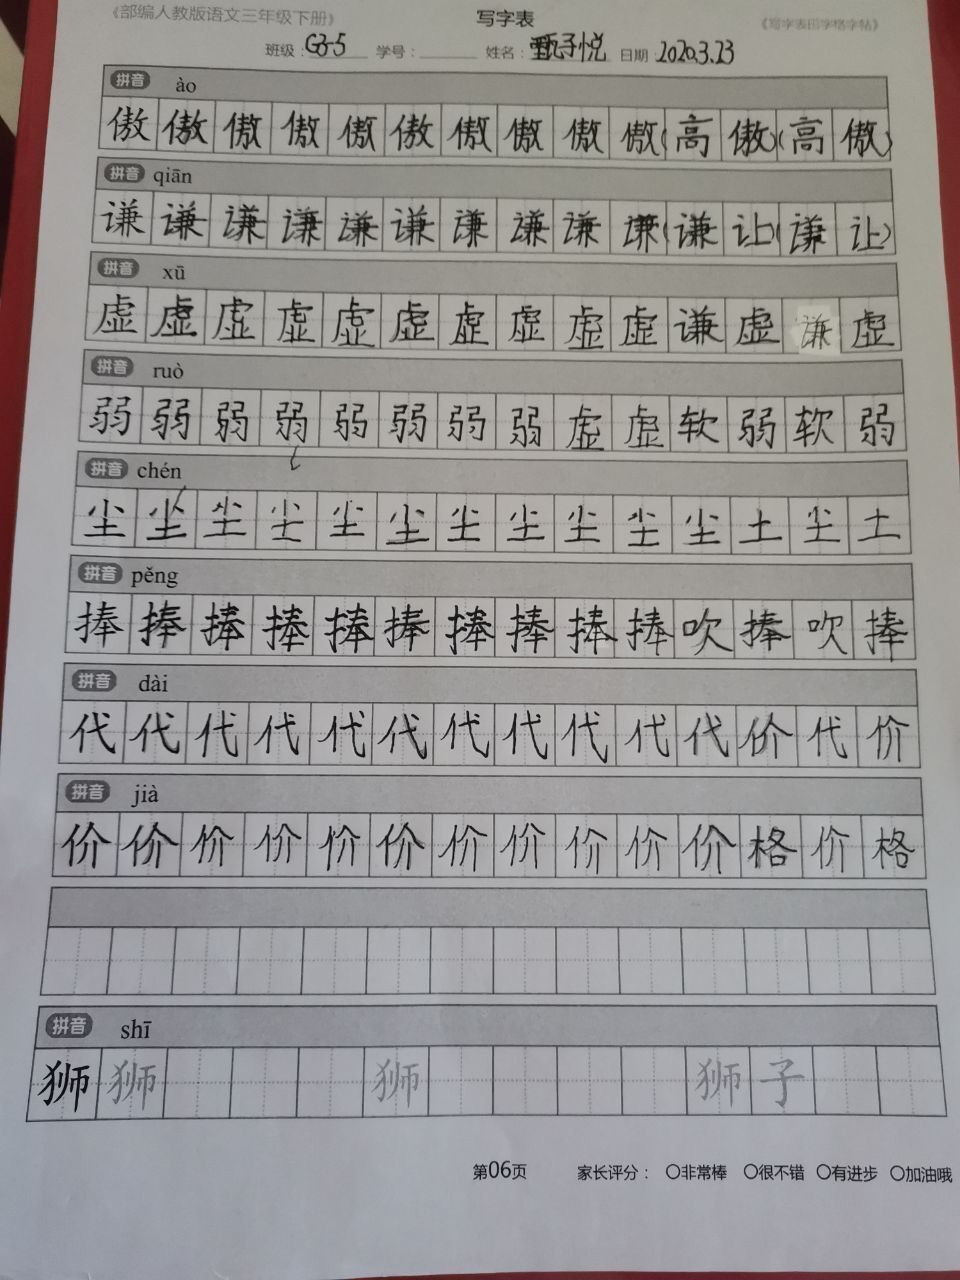 《部编人教版语文三年级下册》 写字表 《写字表田字格字帖》
班级：G3-5 学号： 姓名：甄子悦 日期 2020.3.23
拼音 ào
傲傲傲傲傲傲傲傲傲傲(高傲)(高傲)
拼音 qiān
谦谦谦谦谦谦谦谦谦谦(谦让)(谦让)
拼音 xū
虚虚虚虚虚虚虚虚虚虚谦虚谦虚
拼音 ruò
弱弱弱弱弱弱弱弱虚虚软弱软弱
拼音 chén
尘尘尘尘尘尘尘尘尘尘尘土尘土
拼音 pěng
捧捧捧捧捧捧捧捧捧捧吹捧吹捧
拼音 dài
代代代代代代代代代代代价代价
拼音 jià
价价价价价价价价价价价格价格
拼音 shī
狮狮狮狮子
第06页 家长评分： ○非常棒 ○很不错 ○有进步 ○加油哦